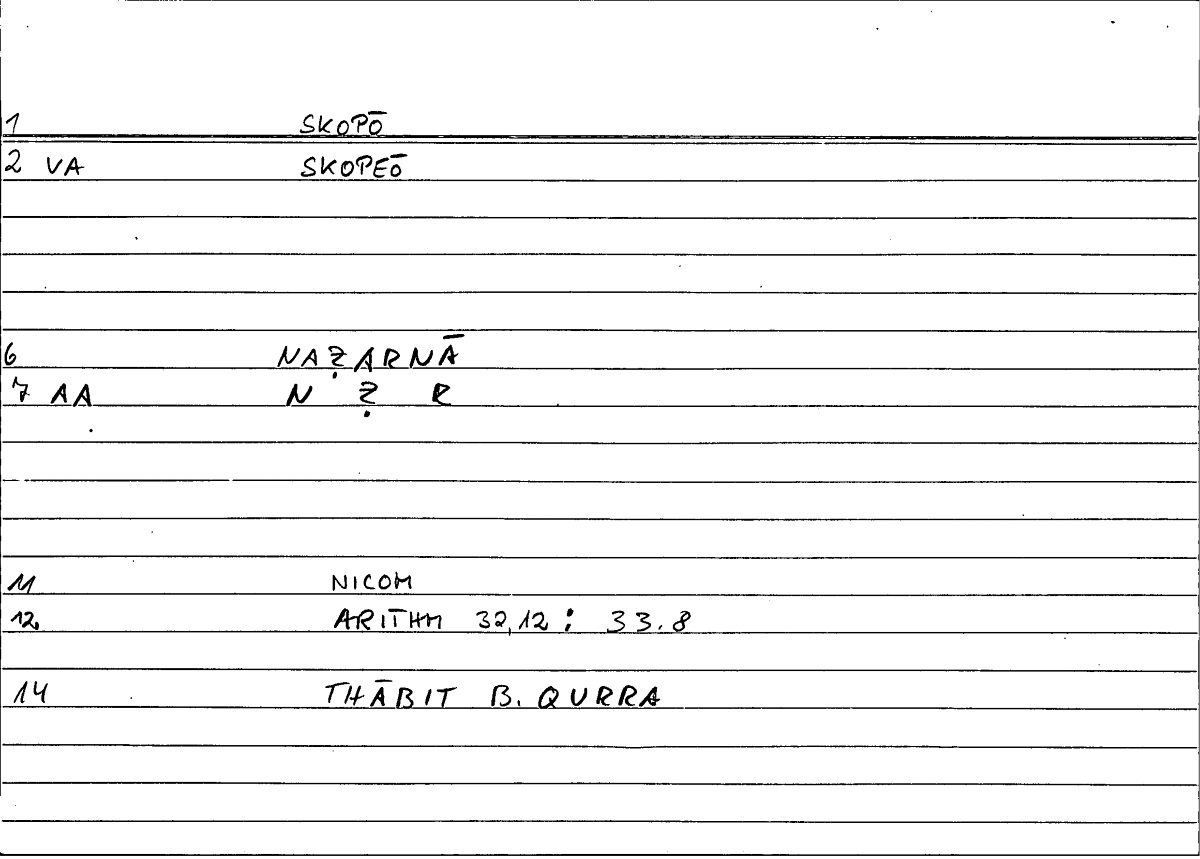 1 SKOPŌ
2 VA SKOPEŌ
6 NAẒARNĀ
7 AA N Ẓ R
11 NICOM
12. ARITHM 32,12 : 33.8
14 THĀBIT B. QURRA